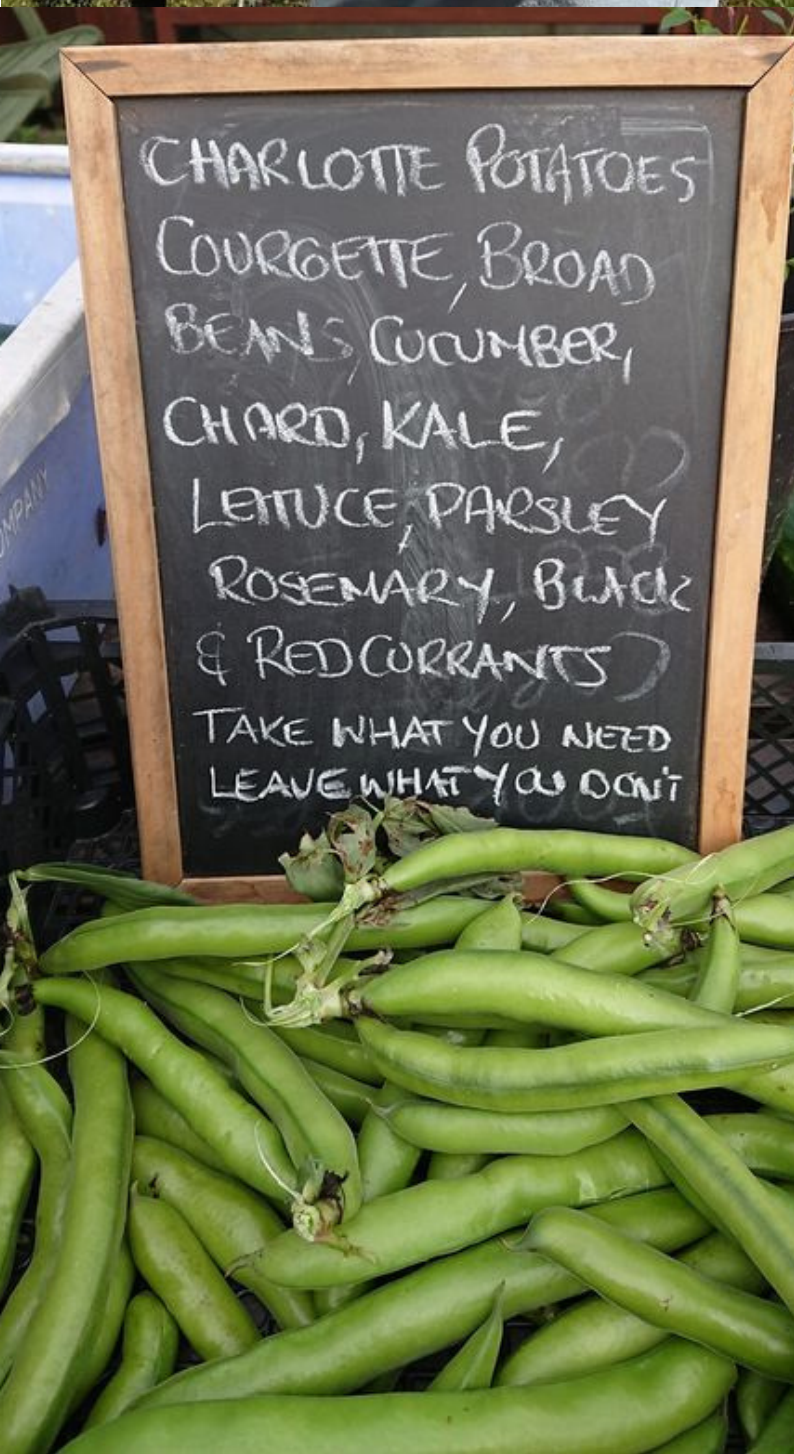 CHARLOTTE POTATOES
COURGETTE, BROAD
BEANS, CUCUMBER,
CHARD, KALE,
LETTUCE, PARSLEY
ROSEMARY, BLACK
& RED CURRANTS
TAKE WHAT YOU NEED
LEAVE WHAT YOU DON'T
OMPANY